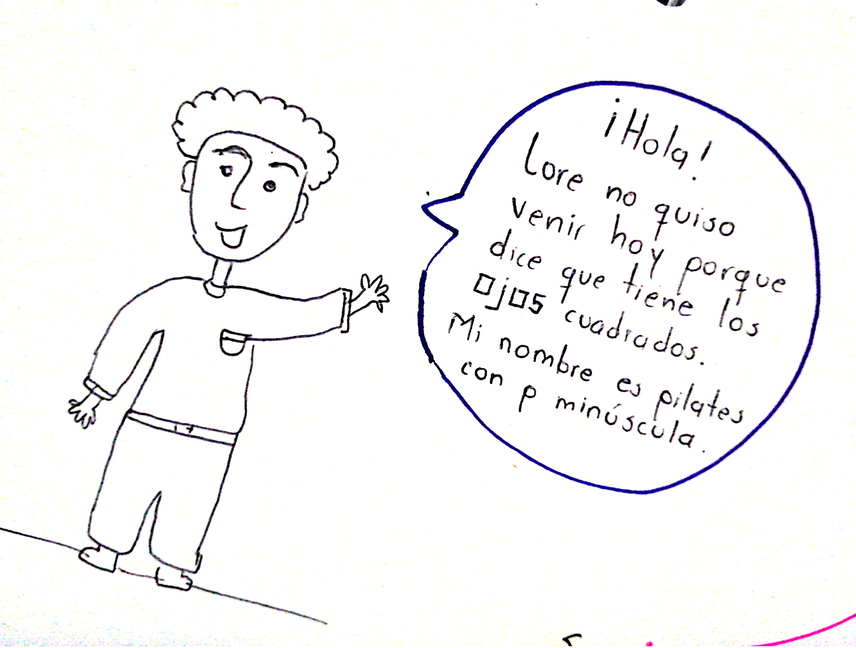 ¡Hola!
Lore no quiso
venir hoy porque
dice que tiene los
ojos cuadrados.
Mi nombre es pilates
con p minúscula.